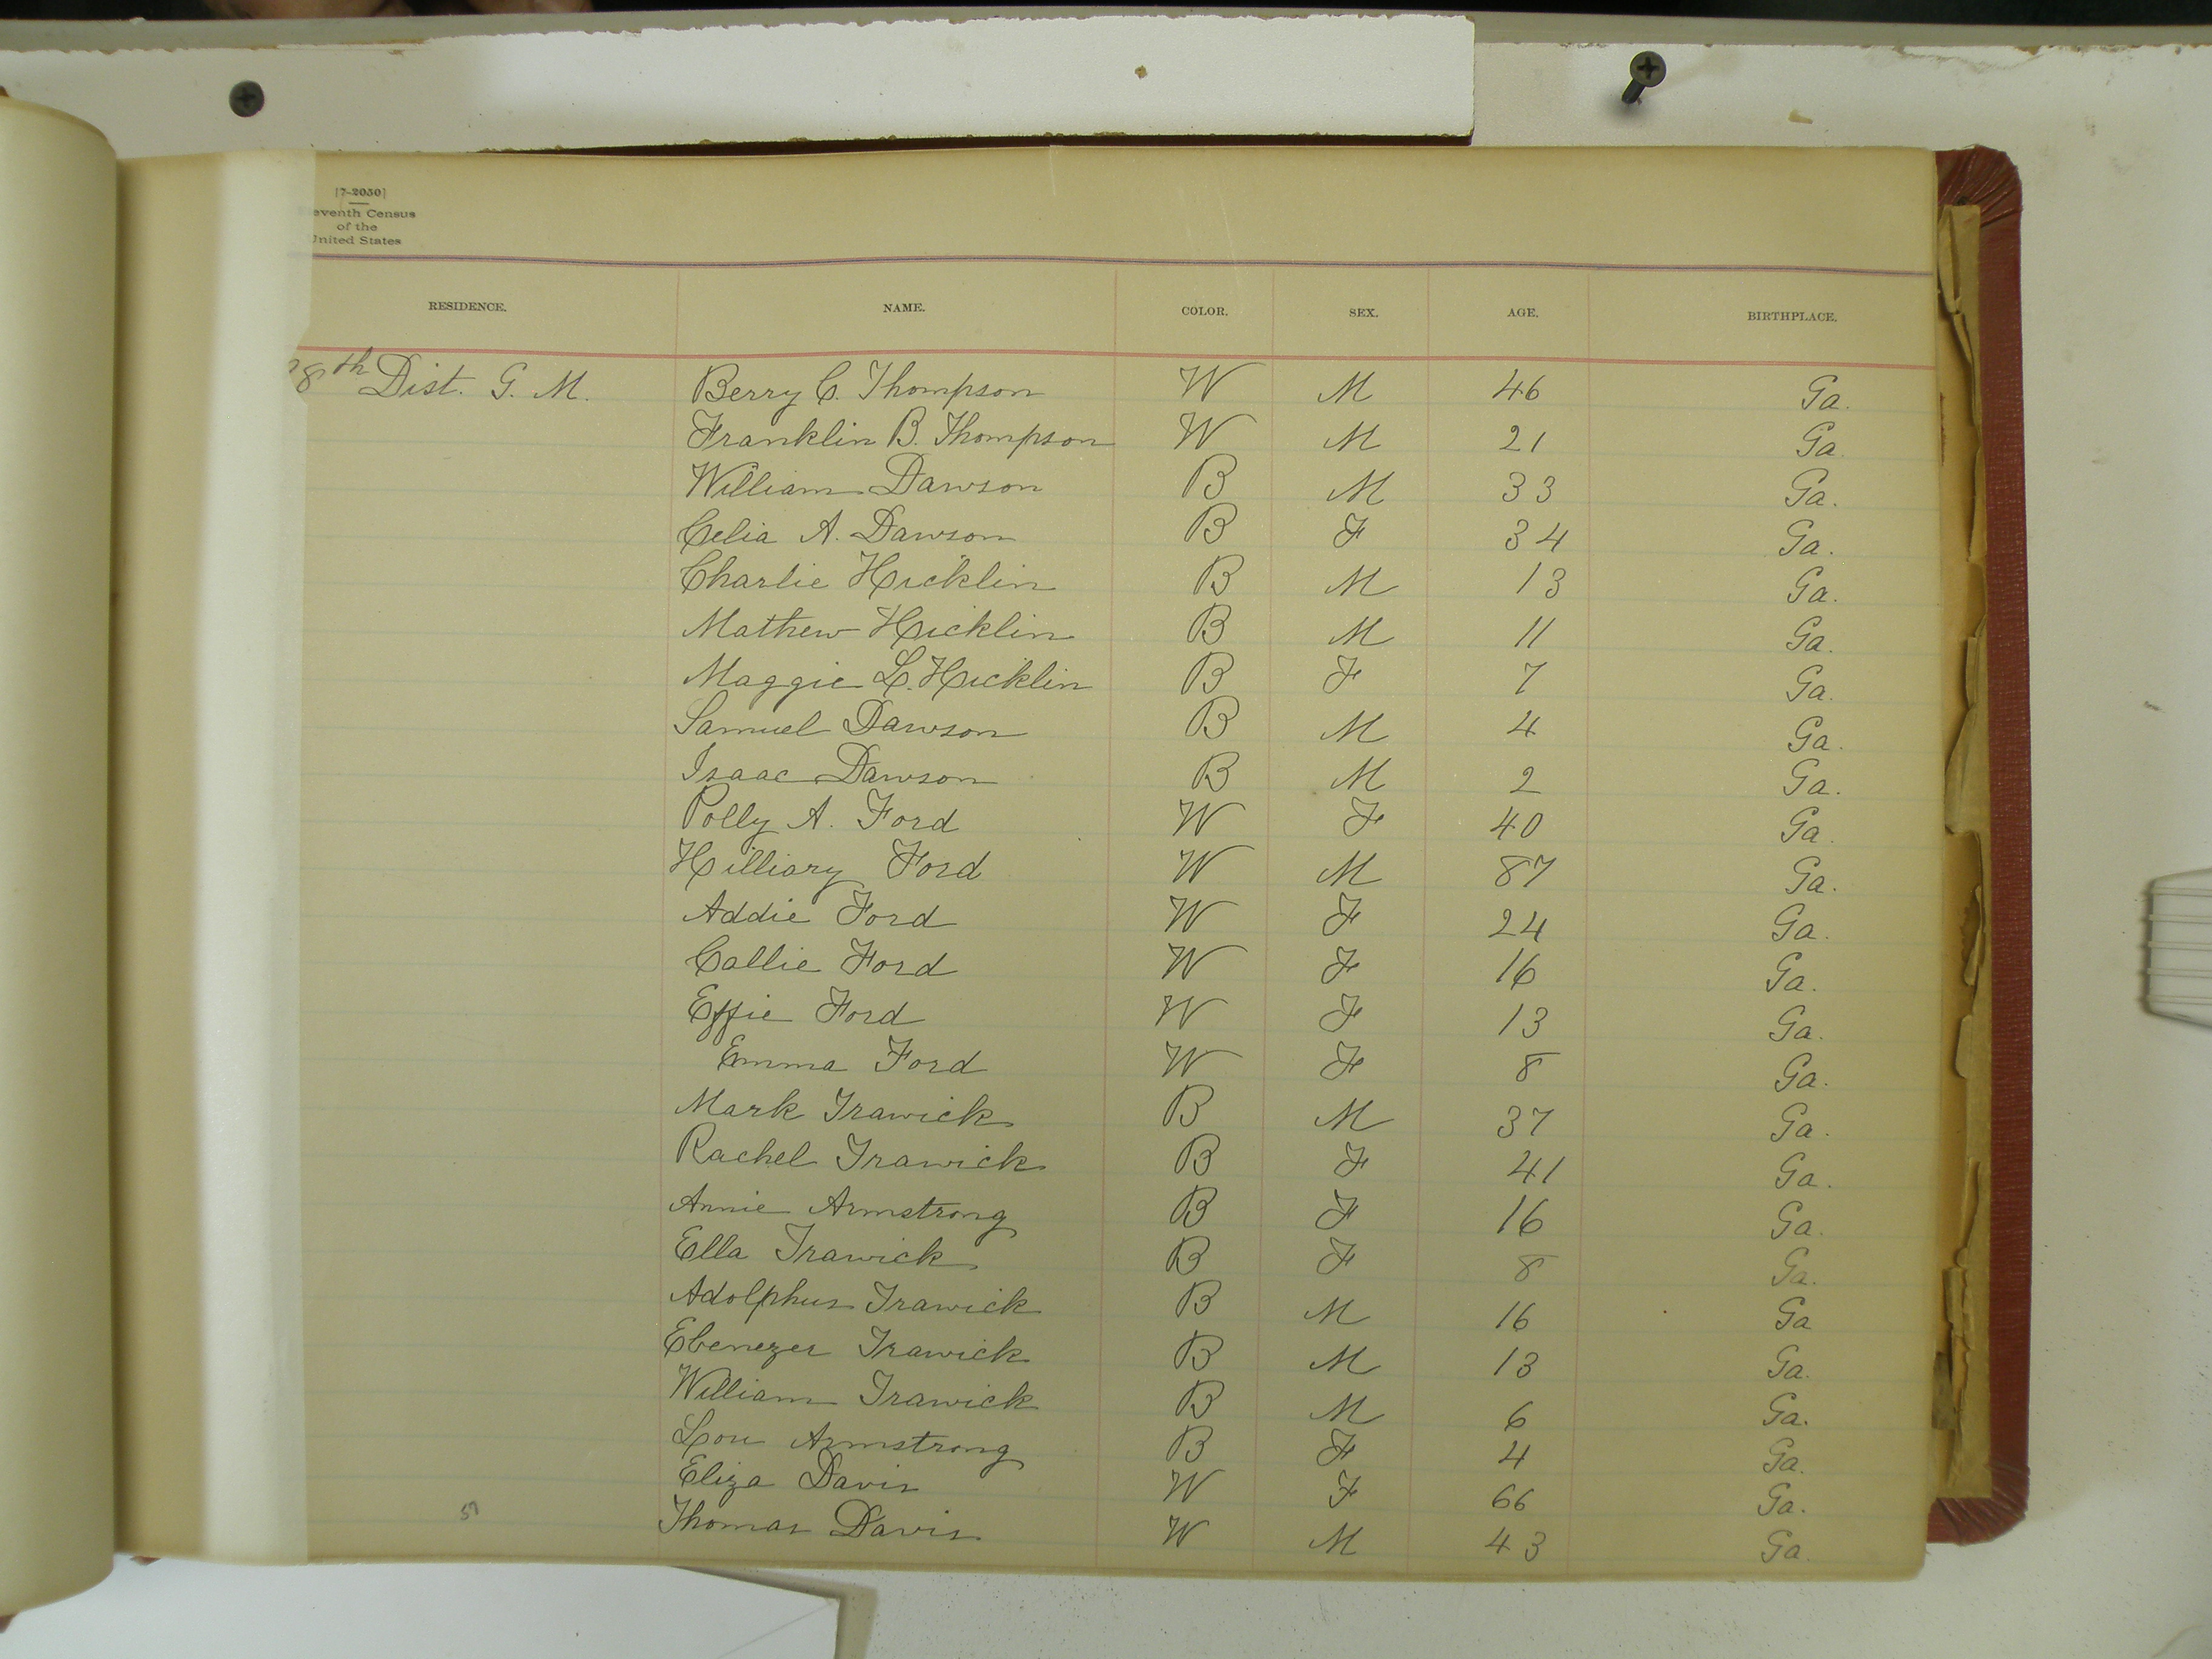 [7-2050]
eventh Census
of the
United States
RESIDENCE. NAME. COLOR. SEX. AGE. BIRTHPLACE.
8th Dist. G. M. Berry C. Thompson W M 46 Ga.
Franklin B. Thompson W M 21 Ga
William Dawson B M 33 Ga.
Celia A. Dawson B F 34 Ga.
Charlie Hicklin B M 13 Ga.
Mathew Hicklin B M 11 Ga.
Maggie L. Hicklin B F 7 Ga.
Samuel Dawson B M 4 Ga.
Isaac Dawson B M 2 Ga.
Polly A. Ford W F 40 Ga.
Hilliary Ford W M 87 Ga.
Addie Ford W F 24 Ga.
Callie Ford W F 16 Ga.
Effie Ford W F 13 Ga.
Emma Ford W F 8 Ga.
Mark Trawick B M 37 Ga.
Rachel Trawick B F 41 Ga.
Annie Armstrong B F 16 Ga.
Ella Trawick B F 8 Ga.
Adolphus Trawick B M 16 Ga
Ebenezer Trawick B M 13 Ga.
William Trawick B M 6 Ga.
Lou Armstrong B F 4 Ga.
Eliza Davis W F 66 Ga.
Thomas Davis W M 43 Ga.